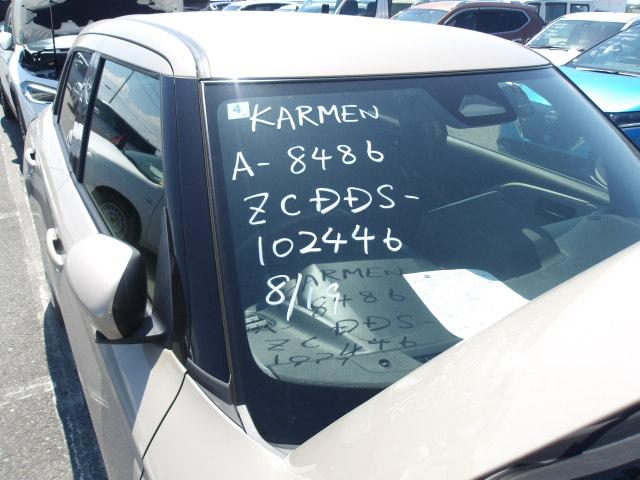 4
KARMEN
A-8486
ZCĐĐS-
102446
8/19